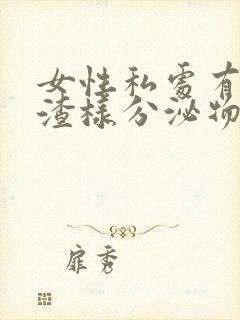 女性私處有
渣樣分泌物
扉秀